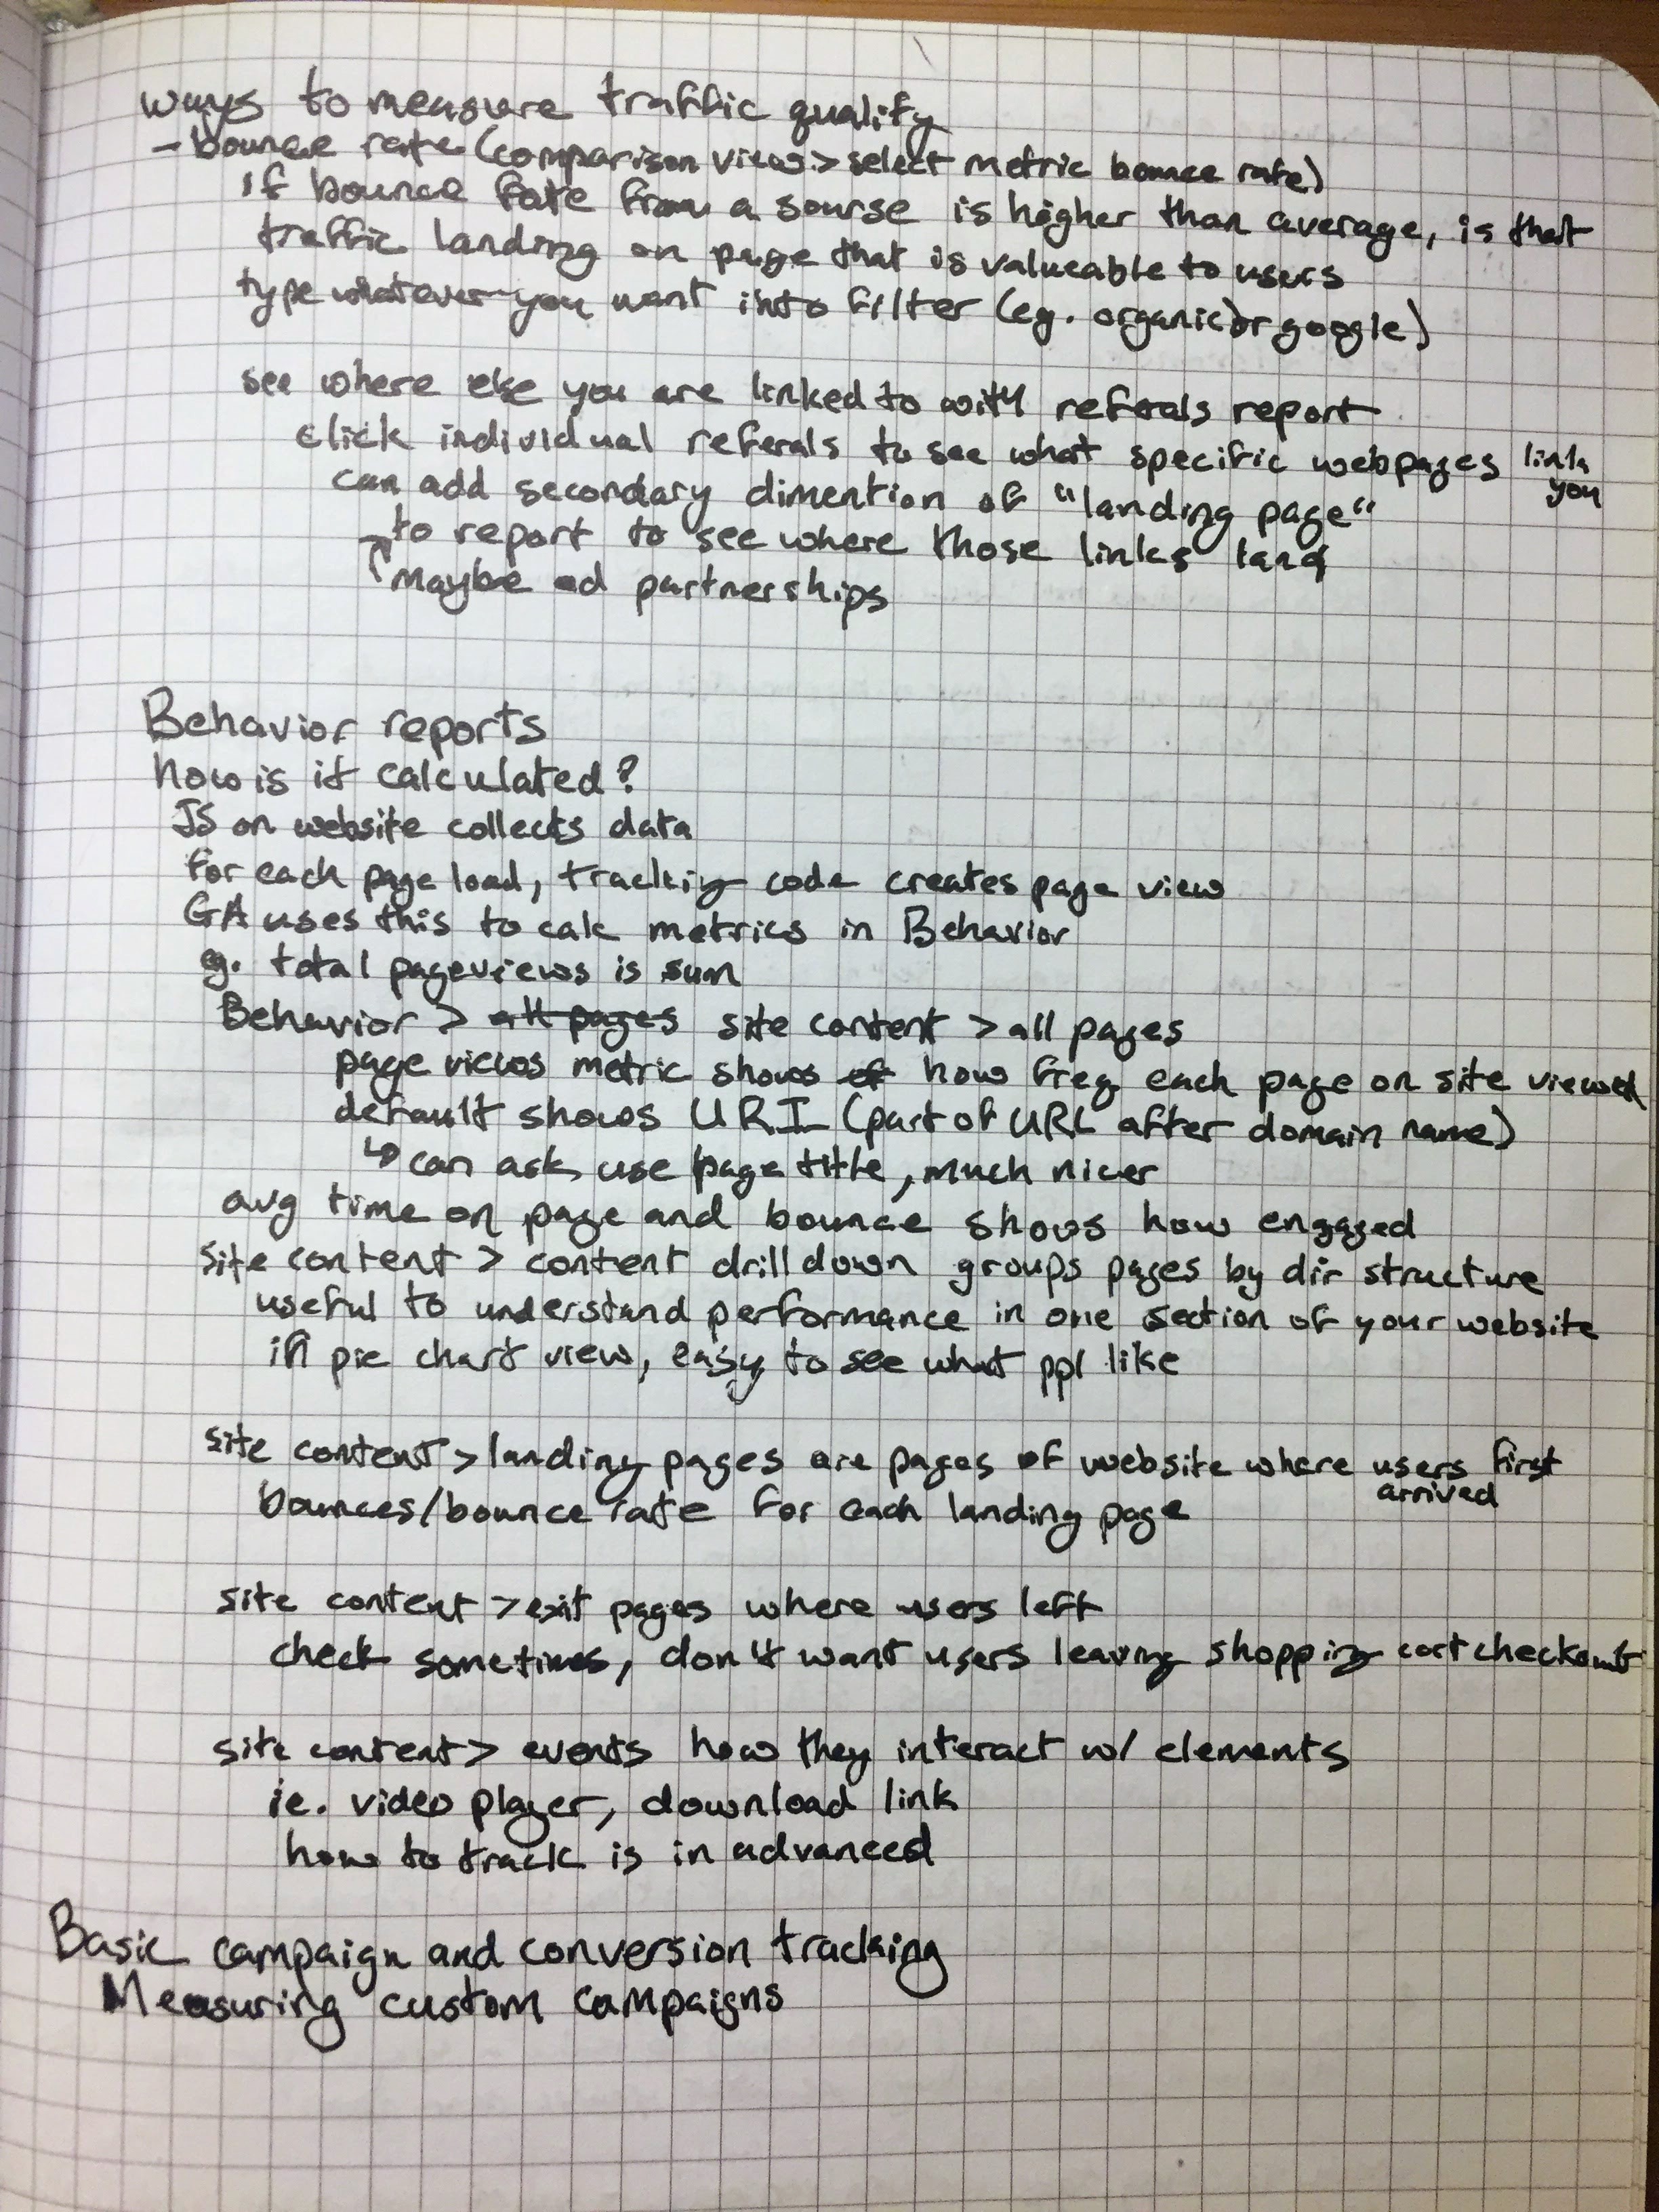 ways to measure traffic quality
- bounce rate (comparison view > select metric bounce rate)
if bounce rate from a sourse is higher than average, is that
traffic landing on page that is valueable to users
type whatever you want into filter (eg. organic or google)
see where else you are linked to with referals report
click individual referals to see what specific webpages link you
can add secondary dimention of "landing page"
to report to see where those links land
maybe ad partnerships
Behavior reports
how is it calculated?
JS on website collects data
for each page load, tracking code creates page view
GA uses this to calc metrics in Behavior
eg. total pageviews is sum
Behavior > all pages site content > all pages
page views metric shows of how freq each page on site viewed
default shows URI (part of URL after domain name)
↳ can ask use page title, much nicer
avg time on page and bounce shows how engaged
site content > content drilldown groups pages by dir structure
useful to understand performance in one section of your website
in pie chart view, easy to see what ppl like
site content > landing pages are pages of website where users first arrived
bounces/bounce rate for each landing page
site content > exit pages where users left
check sometimes, don't want users leaving shopping cart checkout
site content > events how they interact w/ elements
ie. video player, download link
how to track is in advanced
Basic campaign and conversion tracking
Measuring custom campaigns